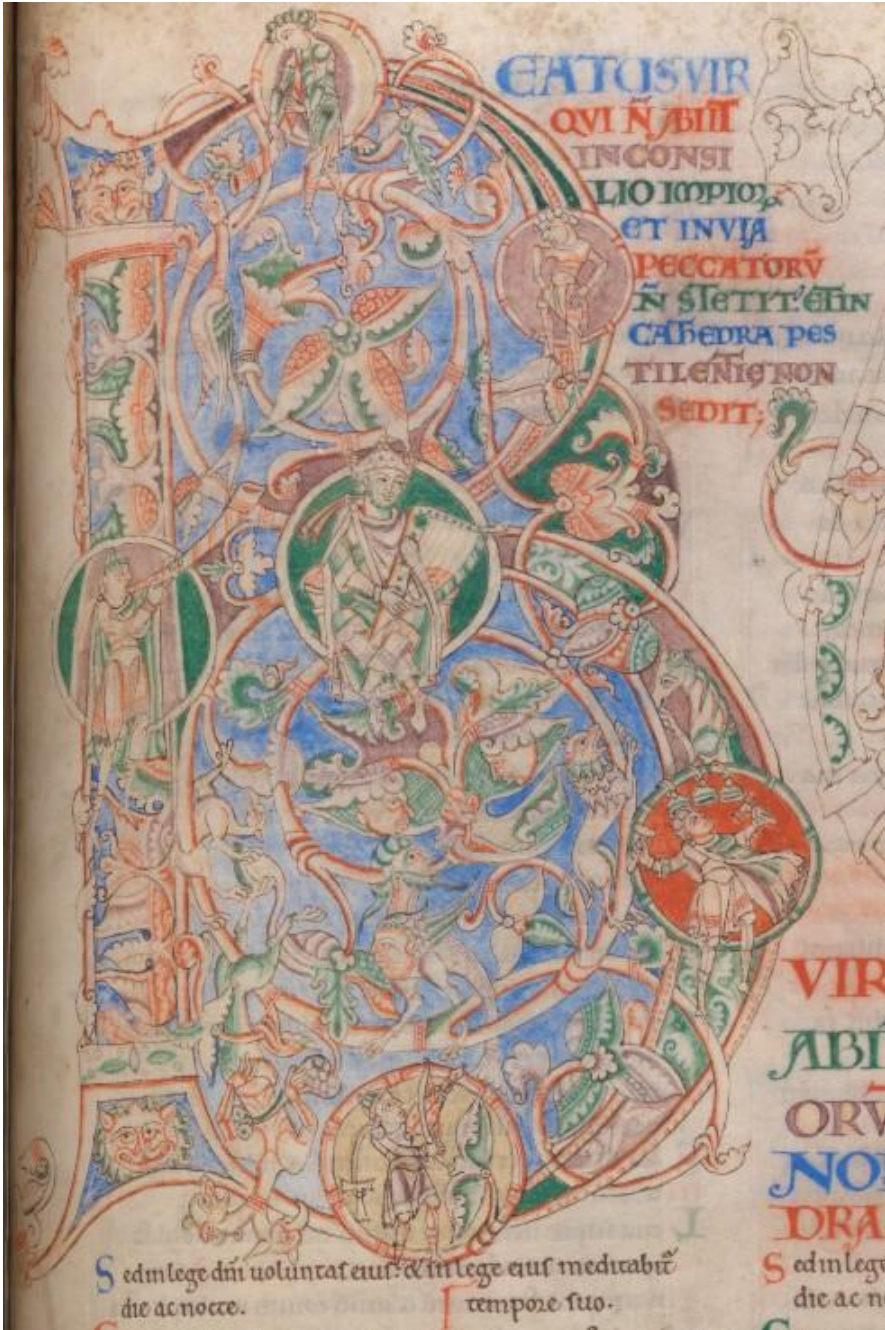 BEATUS VIR
QUI N̄ ABIIT
IN CONSI
LIO IMPIOꝜ
ET IN VIA
PECCATORV̄
N̄ STETIT: ET IN
CATHEDRA PES
TILENTIĘ NON
SEDIT;
VIR
ABI
ORV̄
NO
DRA
Sed in lege dn̄i uoluntas eius: & in lege eius meditabit᷑
die ac nocte.
tempore suo.
Sed in lege
die ac n